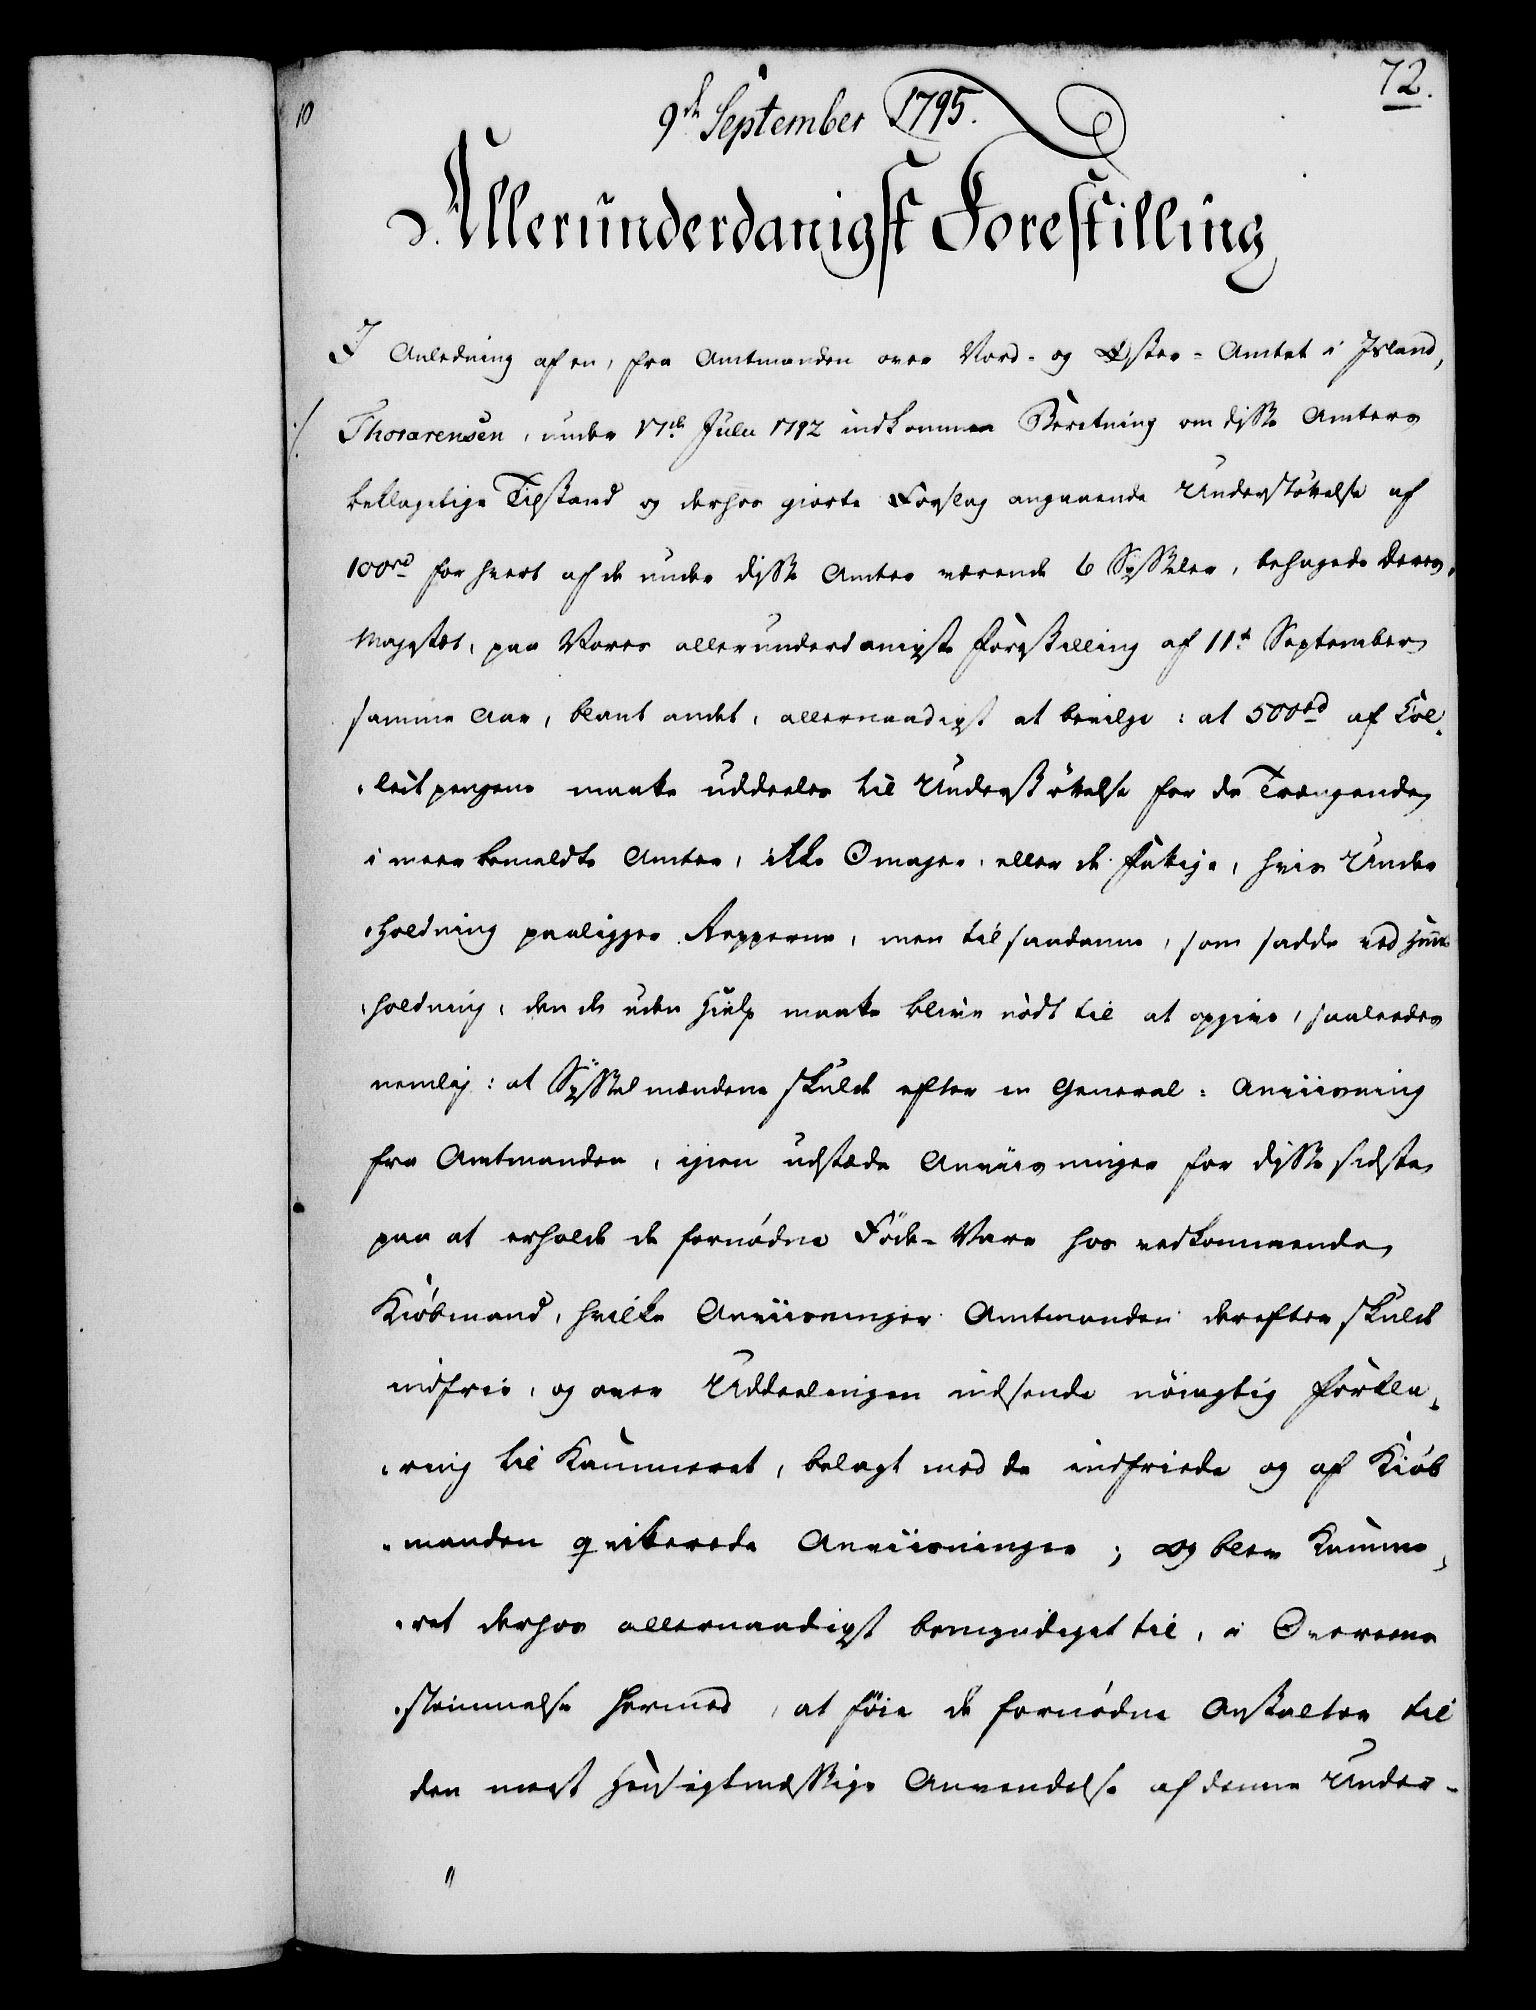 72.
10
9de September 1795.
Allerunderdanigst Forestilling
I Anledning af en, fra Amtmanden over Nord- og Øster-Amtet i Island,
Thorarensen, under 17de Julii 1792 indkommen Beretning om disse Amters
beklagelige Tilstand og derhos giorte Forslag angaaende Understøttelse af
100rd for hvert af de under disse Amter værende 6 Sysseler, behagede Deres
Majestæt, paa Vores allerunderdanigste Forestilling af 11te September
samme Aar, blant andet, allernaadigst at bevilge: at 500rd af Col-
lectpengene maatte uddeeles til Understøttelse for de Trængende
i meerbemeldte Amter, ikke Omager, eller de Fattige, hvis Under
holdning paaligger Repperne, men til saadanne, som sadde ved Huus
holdning, den de uden Hielp maatte blive nødt til at opgive, saaledes
nemlig: at Sysselmændene skulde efter en General-Anviisning
fra Amtmanden, igien udstæde Anviisninger for disse sidste
paa at erholde de fornødne Føde-Vare hos vedkommende
Kiøbmand, hvilke Anviisninger Amtmanden derefter skulde
indfrie, og over Uddeelingen indsende nøiagtig Forkla-
ring til Kammeret, belagt med de indfriede og af Kiøb
manden qvitterede Anviisninger; og blev Kamme-
ret derhos allernaadigst bemyndiget til, i Overeens
stemmelse hermed, at føie de fornødne Anstalter til
den meest hensigtmæssige Anvendelse af denne Under-